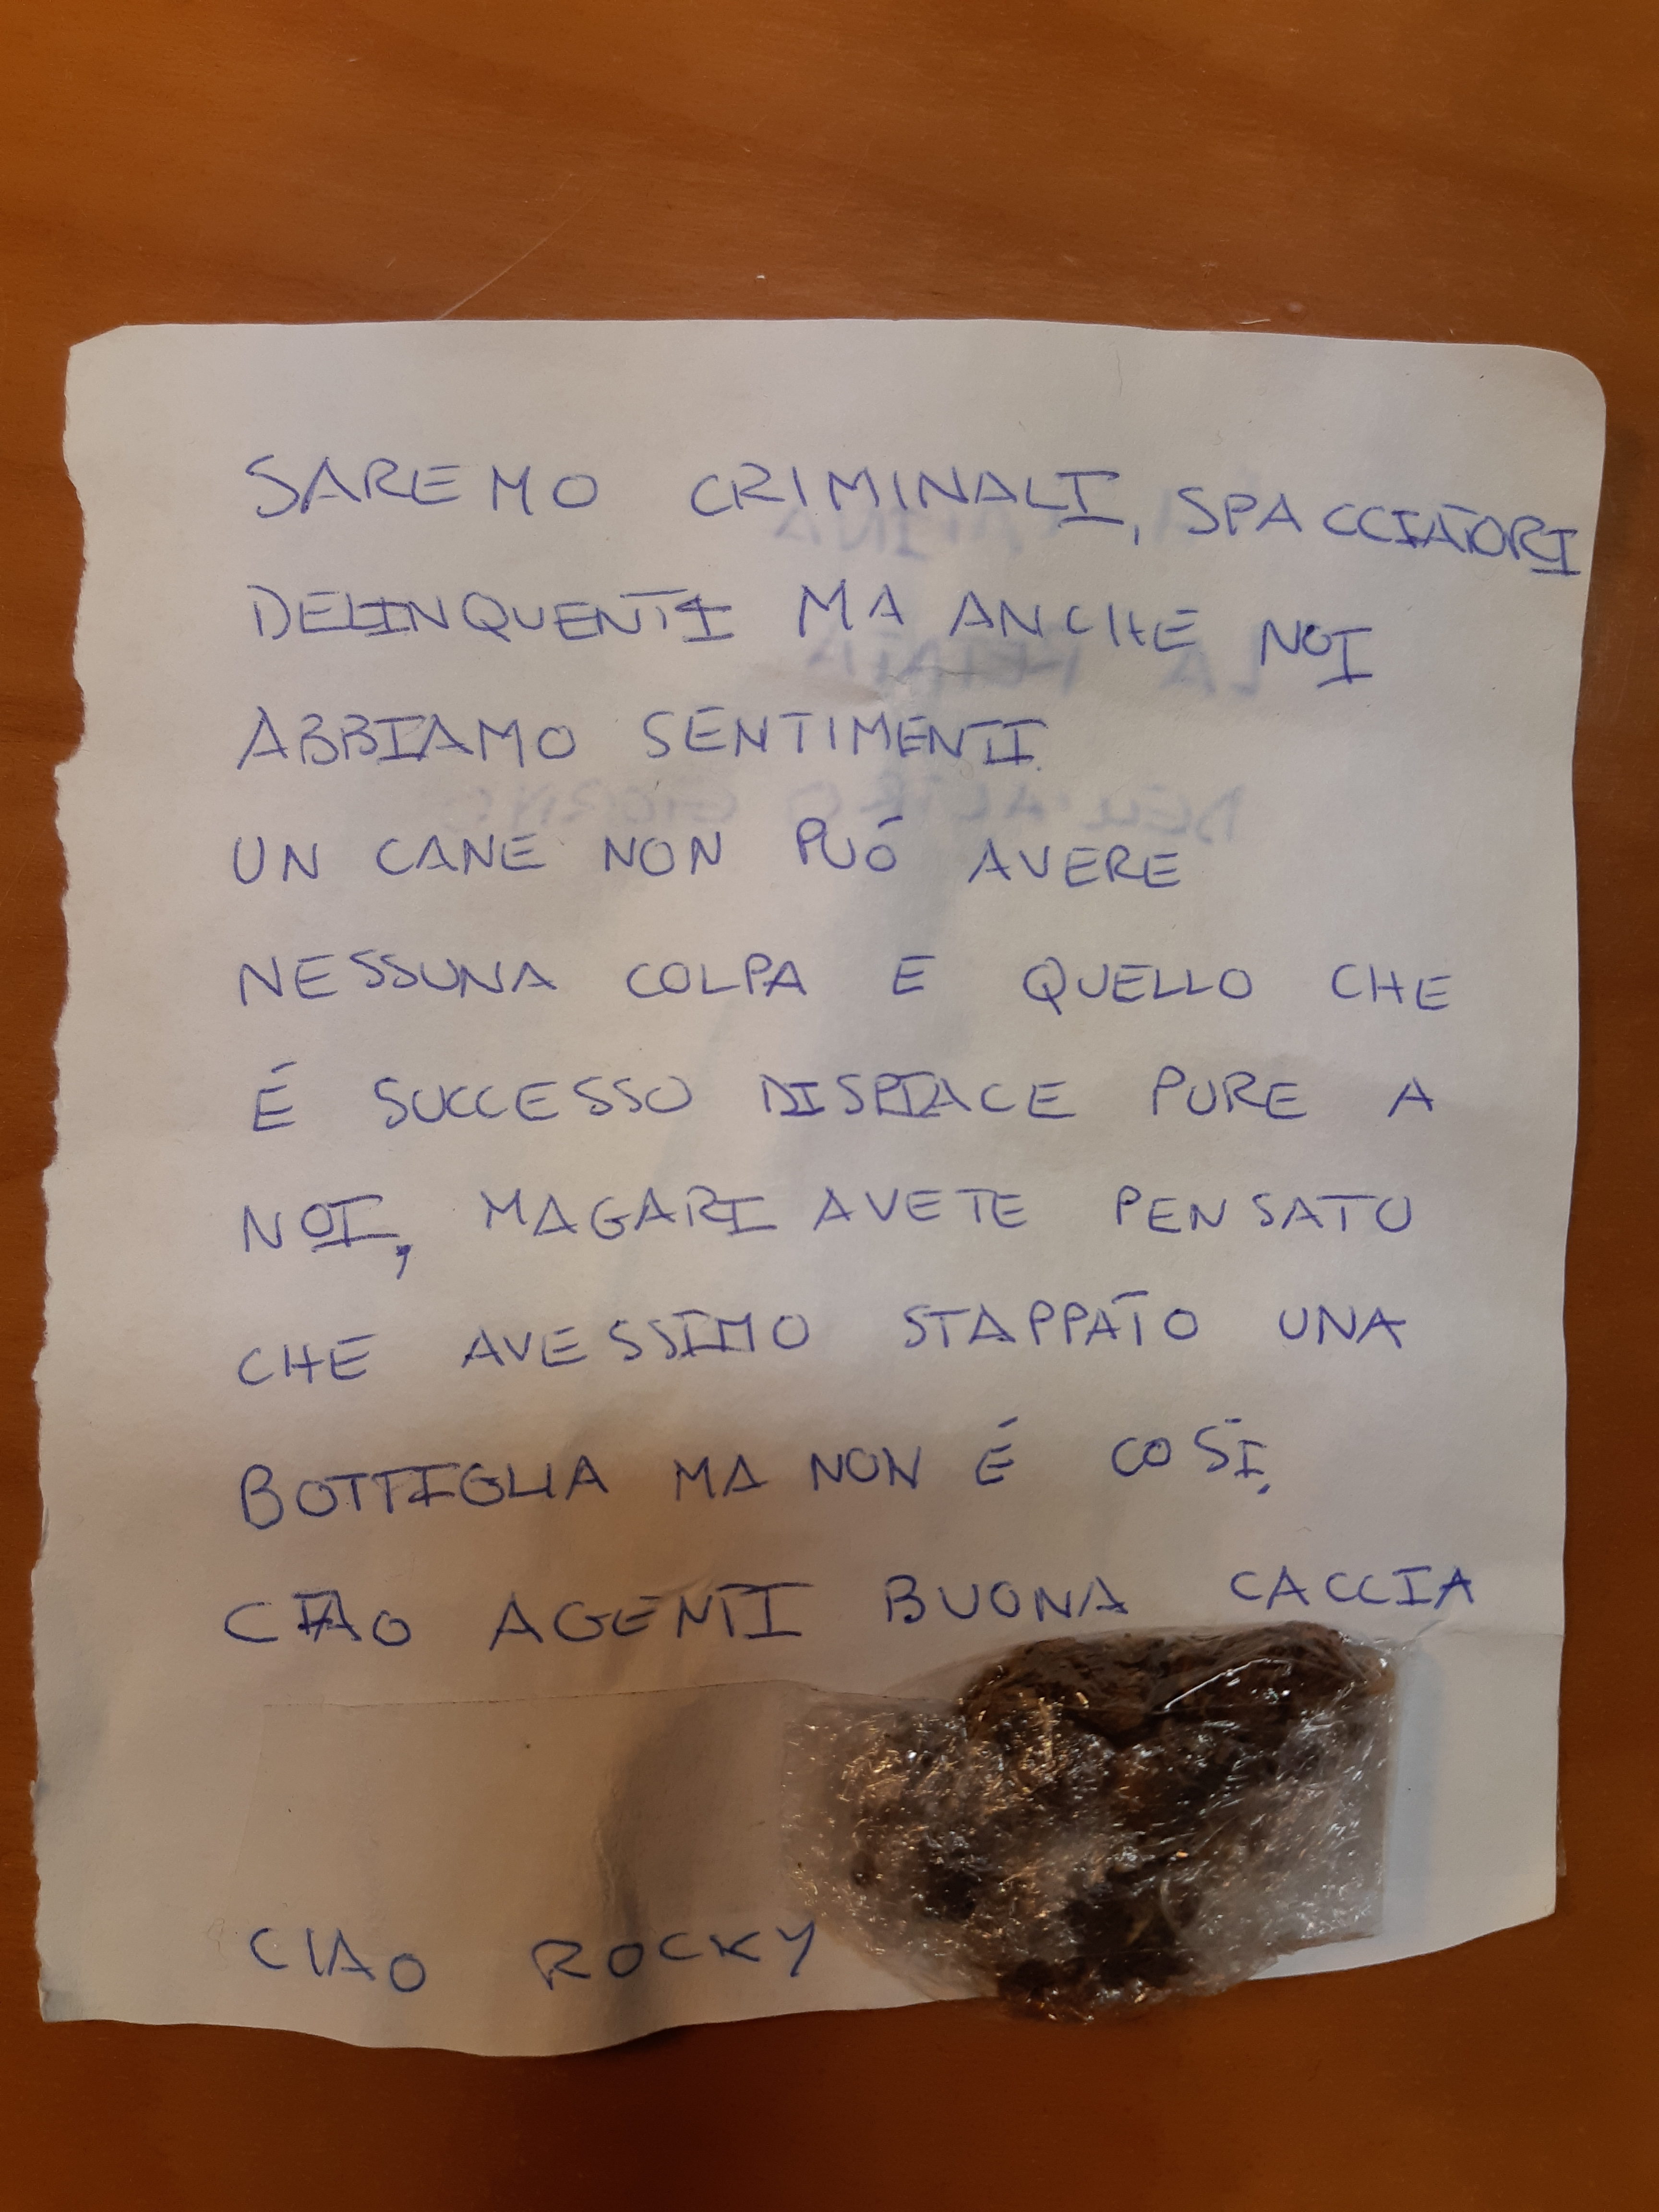 SAREMO CRIMINALI, SPACCIATORI
DELINQUENTI MA ANCHE NOI
ABBIAMO SENTIMENTI.
UN CANE NON PUÓ AVERE
NESSUNA COLPA E QUELLO CHE
É SUCCESSO DISPIACE PURE A
NOI, MAGARI AVETE PENSATO
CHE AVESSIMO STAPPATO UNA
BOTTIGLIA MA NON É COSÍ.
CIAO AGENTI BUONA CACCIA
CIAO ROCKY